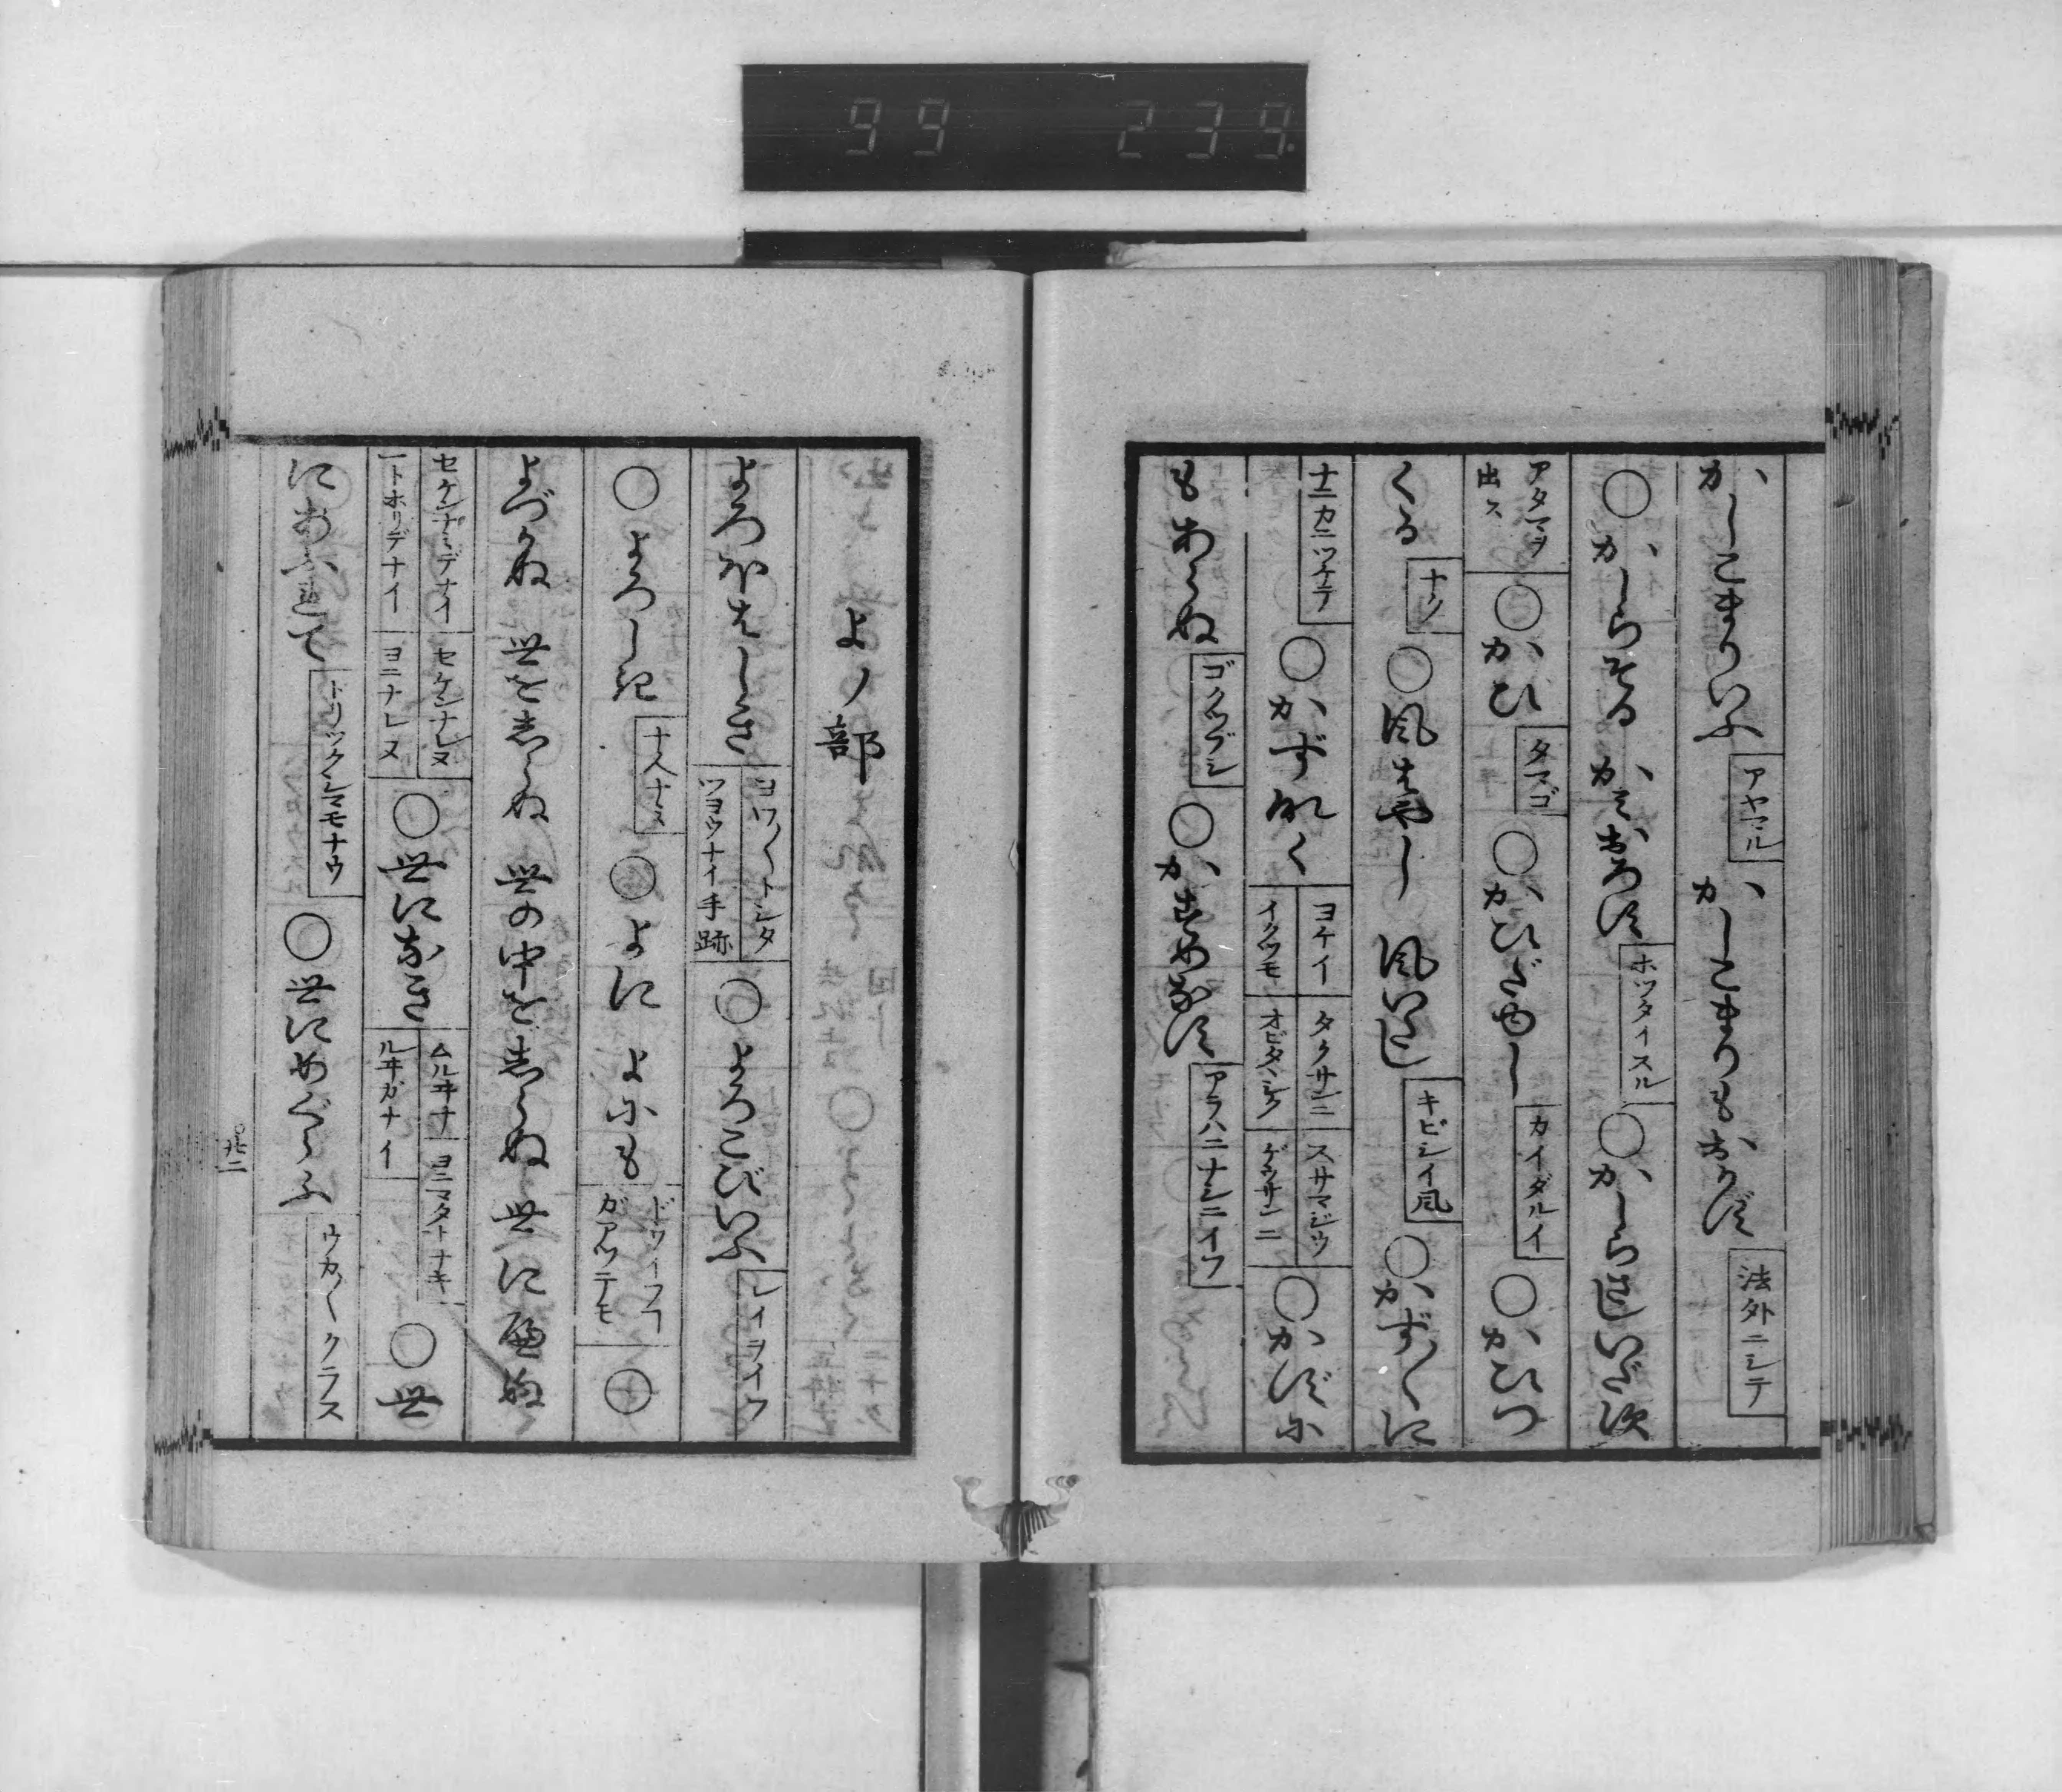 99 239
かしこまりいふ アヤマル かしこまりもおかず 法外ニシテ
○かしらそる かみおろす ホツタイスル ○かしらさしいだす
アタマヲ出ス ○かひ タマゴ ○かひだゆし カイダルイ ○かひつ
くる ナク ○風はやし 風いたし キビシイ風 ○かず〳〵に
ナニカニツケテ ○かずなく ヨケイ イクツモ タクサンニ オビタヽシク スサマジウ ゲウサンニ ○かずに
もあらぬ ゴクツブシ ○かすめなす アラハニナシニイフ
よノ部
よろぼはしき ヨワ〳〵トシタ ツヨウナイ手跡 ○よろこびいふ レイヲイフ
○よろしき ナヘナミ ○よに よにも ドウイフコ ガアツテモ ○
よづかぬ 世をしらぬ 世の中をしらぬ 世に似ぬ
セケンナミデナイ 一トホリデナイ セケンナレヌ ヨニナレヌ ○世になき ムルヰナ ルヰガナイ ヨニマタトナキ ○世
におふれて トリツクシマモナウ ○世にめぐらふ ウカ〳〵クラス
卅二